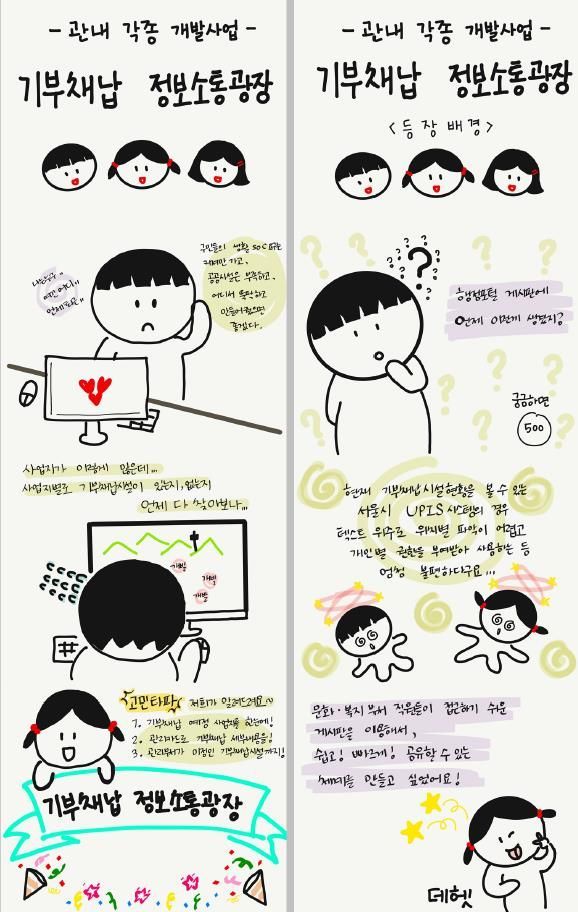 - 관내 각종 개발사업 -
기부채납 정보소통광장
국민들의 생활 SOC 요구는
커져만 가고,
공공시설은 부족하고,
어디서 뚝딱하고
만들어졌으면
좋겠다.
사업지가 이렇게 많은데...
사업지별로 기부채납시설이 있는지, 없는지
언제 다 찾아보나...
개발
개발
개발
고민타파
저희가 알려드려요~
1. 기부채납 예정 사업지를 한눈에!
2. 관리카드로 기부채납 세부내용을!
3. 관리부서가 미정인 기부채납시설까지!
기부채납 정보소통광장
- 관내 각종 개발사업 -
기부채납 정보소통광장
<등장배경>
행정포털 게시판에
언제 이런게 생겼지?
궁금하면
500
현재 기부채납시설현황을 볼 수 있는
서울시 UPIS 시스템의 경우
텍스트 위주로 위치별 파악이 어렵고
개인별 권한을 부여받아 사용하는 등
엄청 불편하다구요...
문화·복지 부서 직원들이 접근하기 쉬운
게시판을 이용해서,
쉽고! 빠르게! 공유할 수 있는
체계를 만들고 싶었어요!
데헷